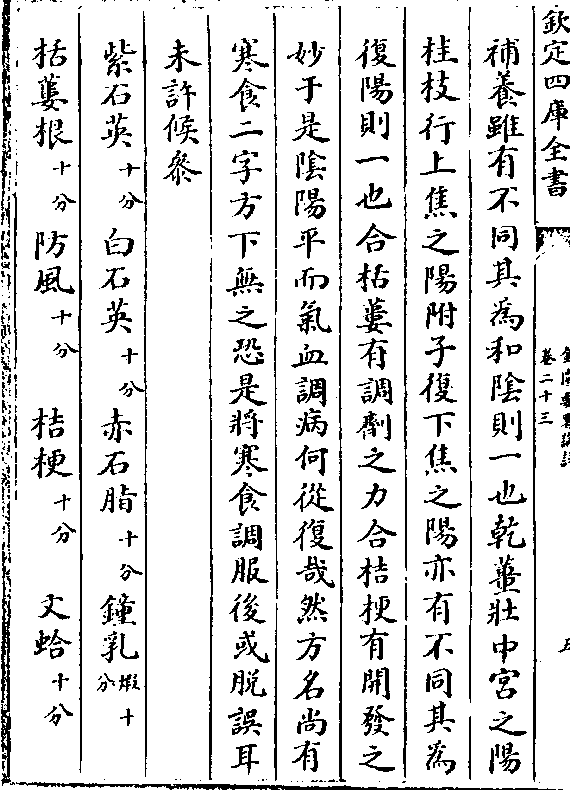 欽定四庫全書
卷二十三
補養雖有不同其為和陰則一也乾薑壯中宮之陽
桂枝行上焦之陽附子復下焦之陽亦有不同其為
復陽則一也合栝蔞有調劑之力合桔梗有開發之
妙于是陰陽平而氣血調病何從復哉然方名尚有
寒食二字方下無之恐是將寒食調服後或脫誤耳
未許候叅
紫石英十分 白石英十分 赤石脂十分 鐘乳煅十分
栝蔞根十分 防風十分 桔梗十分 文蛤十分